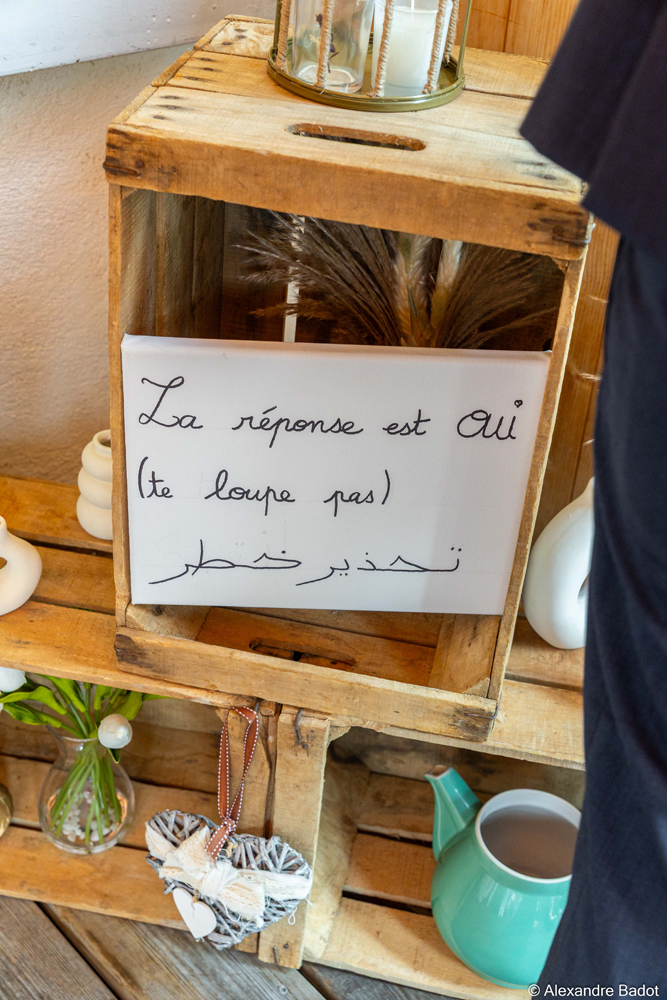 La réponse est oui
(te loupe pas)
تحذير خطر
© Alexandre Badot